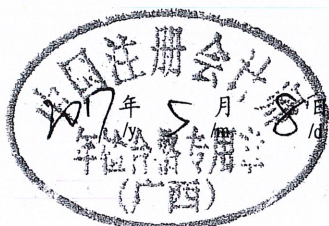 中国注册会计师
2017年 5月 8日
/y /m /d
年检合格专用章
(广西)